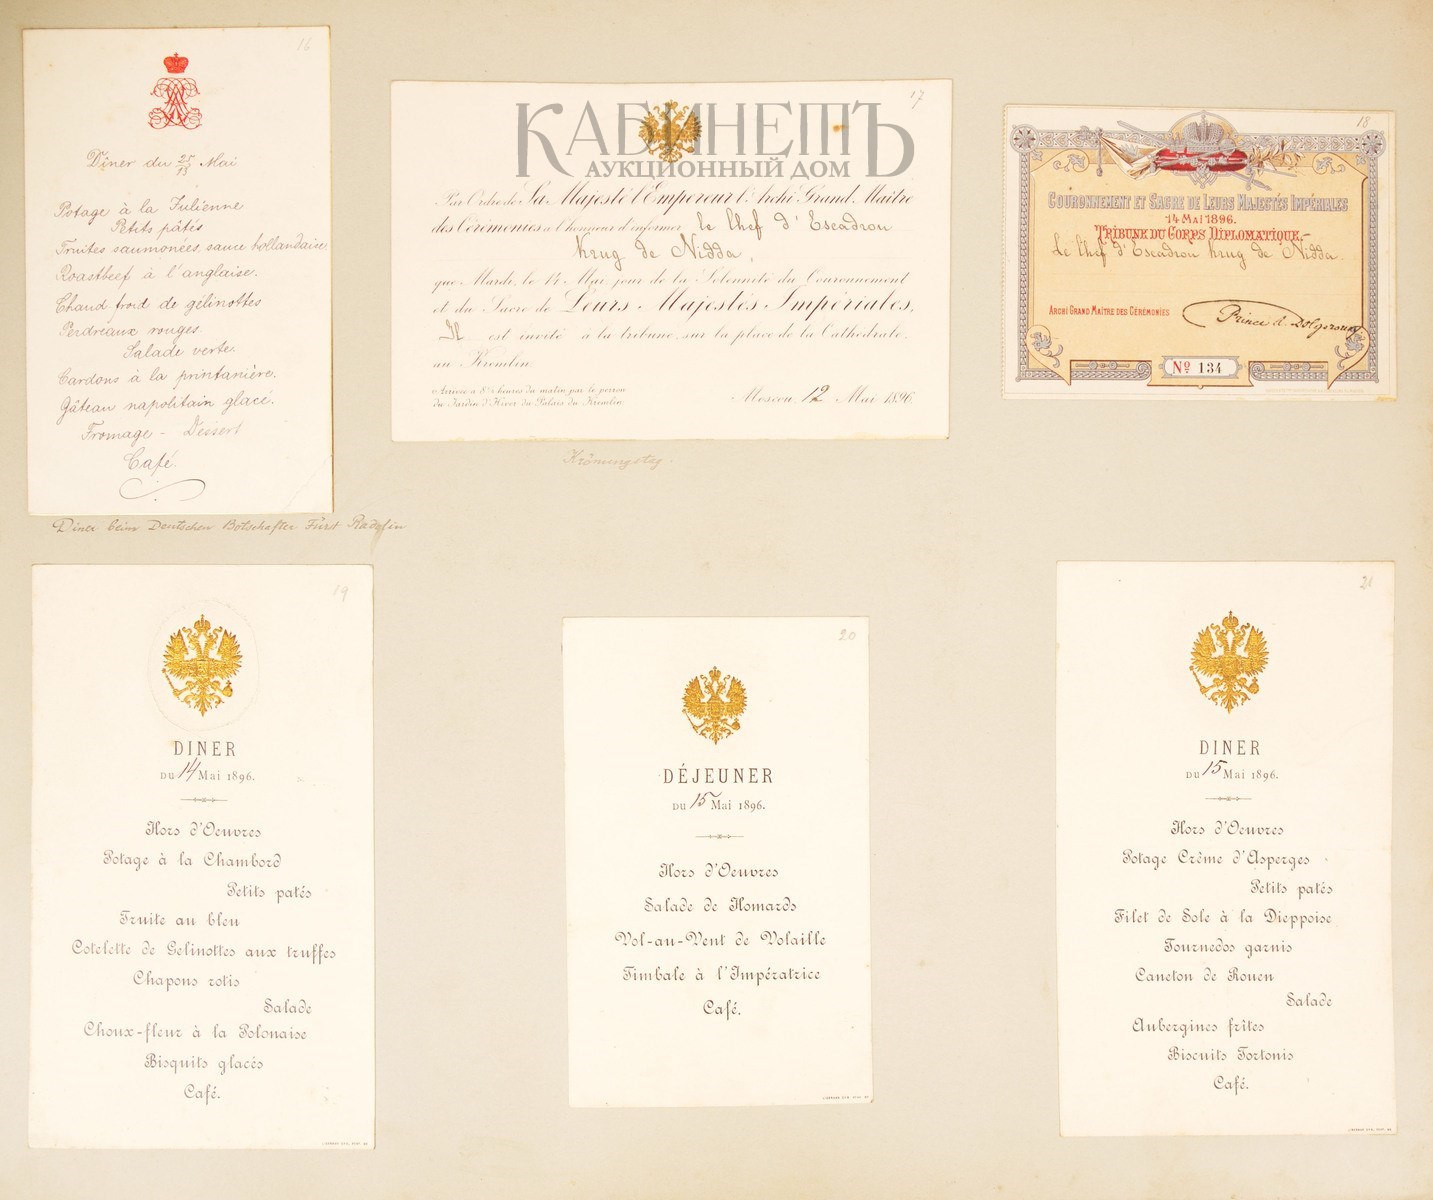 16
Dîner du 25/13 Mai
Potage à la Julienne
Petits pâtés
Truites saumonées, sauce hollandaise
Roastbeef à l'anglaise.
Chaud froid de gélinottes
Perdreaux rouges.
Salade verte.
Cardons à la printanière.
Gâteau napolitain glacé.
Fromage - Dessert
Café.
Diner beim Deutschen Botschafter Fürst Radolin
17
КАБИНЕТЪ
АУКЦИОННЫЙ ДОМ
Par Ordre de Sa Majesté l'Empereur l'Archi Grand-Maître
des Cérémonies a l'honneur d'informer le Chef d'Escadron
Krug de Nidda,
que Mardi, le 14 Mai, jour de la Solennité du Couronnement
et du Sacre de Leurs Majestés Impériales,
Il est invité à la tribune sur la place de la Cathédrale,
au Kremlin.
Arrivée à 8½ heures du matin par le perron
du Jardin d'Hiver du Palais du Kremlin.
Moscou, 12 Mai 1896.
Krönungstag.
18
COURONNEMENT ET SACRE DE LEURS MAJESTÉS IMPÉRIALES
14 MAI 1896.
TRIBUNE DU CORPS DIPLOMATIQUE.
Le Chef d'Escadron Krug de Nidda
ARCHI GRAND MAÎTRE DES CÉRÉMONIES
Prince A. Dolgorouky
No 134
19
DINER
DU 14 Mai 1896.
Hors d'Oeuvres
Potage à la Chambord
Petits patés
Truite au bleu
Cotelette de Gelinottes aux truffes
Chapons rotis
Salade
Choux-fleur à la Polonaise
Bisquits glacés
Café.
20
DÉJEUNER
DU 15 Mai 1896.
Hors d'Oeuvres
Salade de Homards
Vol-au-Vent de Volaille
Timbale à l'Impératrice
Café.
21
DINER
DU 15 Mai 1896.
Hors d'Oeuvres
Potage Crème d'Asperges
Petits patés
Filet de Sole à la Dieppoise
Tournedos garnis
Caneton de Rouen
Salade
Aubergines frîtes
Biscuits Tortonis
Café.